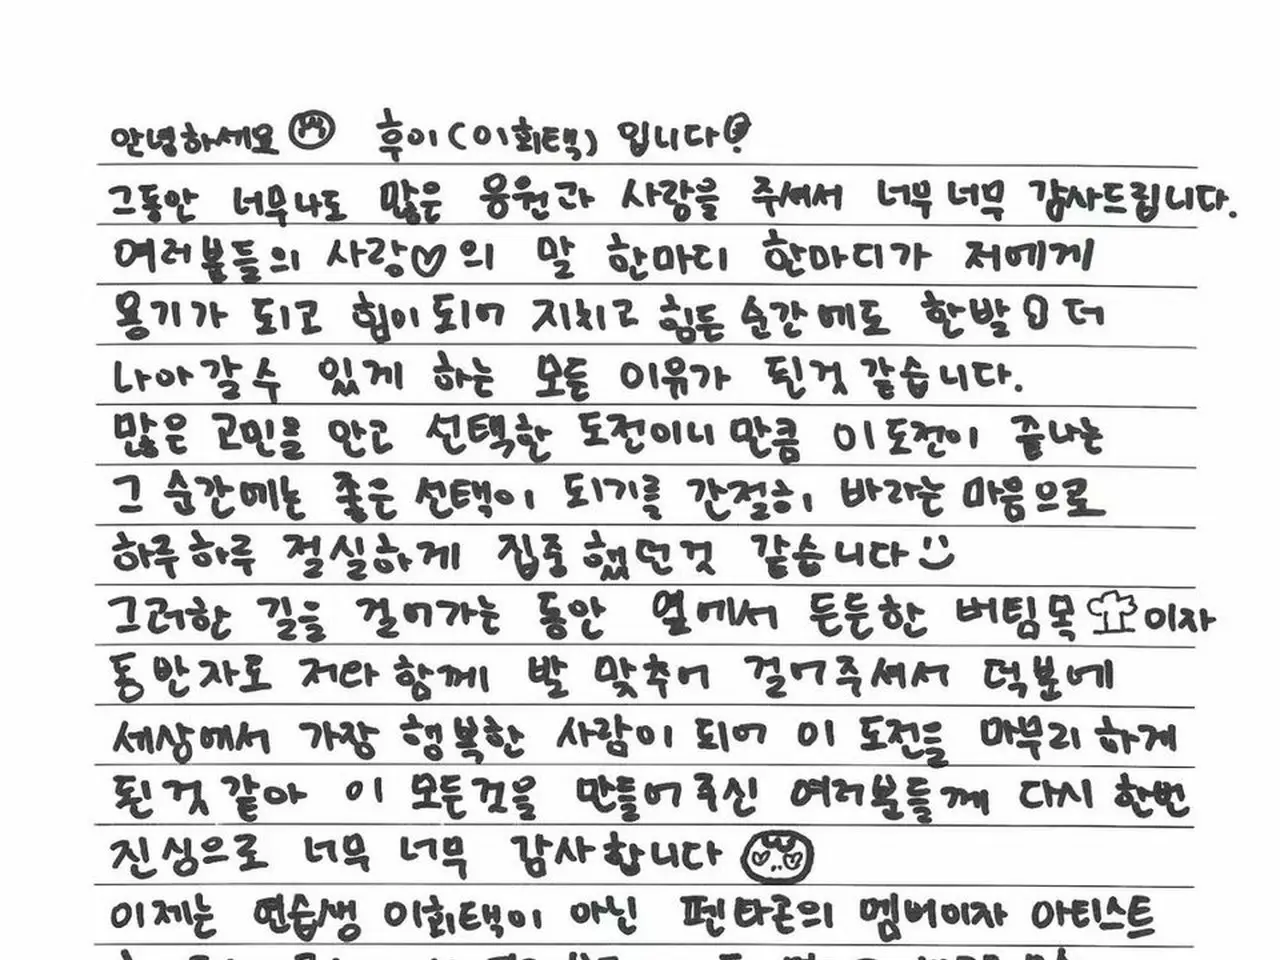 안녕하세요 후이(이회택) 입니다
그동안 너무나도 많은 응원과 사랑을 주셔서 너무 너무 감사드립니다.
여러분들의 사랑♡의 말 한마디 한마디가 저에게
용기가 되고 힘이되어 지치고 힘든 순간에도 한발 더
나아갈수 있게 하는 모든 이유가 된것 같습니다.
많은 고민을 안고 선택한 도전이니 만큼 이 도전이 끝나는
그 순간에는 좋은 선택이 되기를 간절히 바라는 마음으로
하루하루 절실하게 집중했던것 같습니다
그러한 길을 걸어가는 동안 옆에서 든든한 버팀목 이자
동반자로 저와 함께 발 맞추어 걸어주셔서 덕분에
세상에서 가장 행복한 사람이 되어 이 도전을 마무리 하게
된것 같아 이 모든것을 만들어주신 여러분들께 다시 한번
진심으로 너무 너무 감사합니다
이제는 연습생 이회택이 아닌 펜타곤의 멤버이자 아티스트